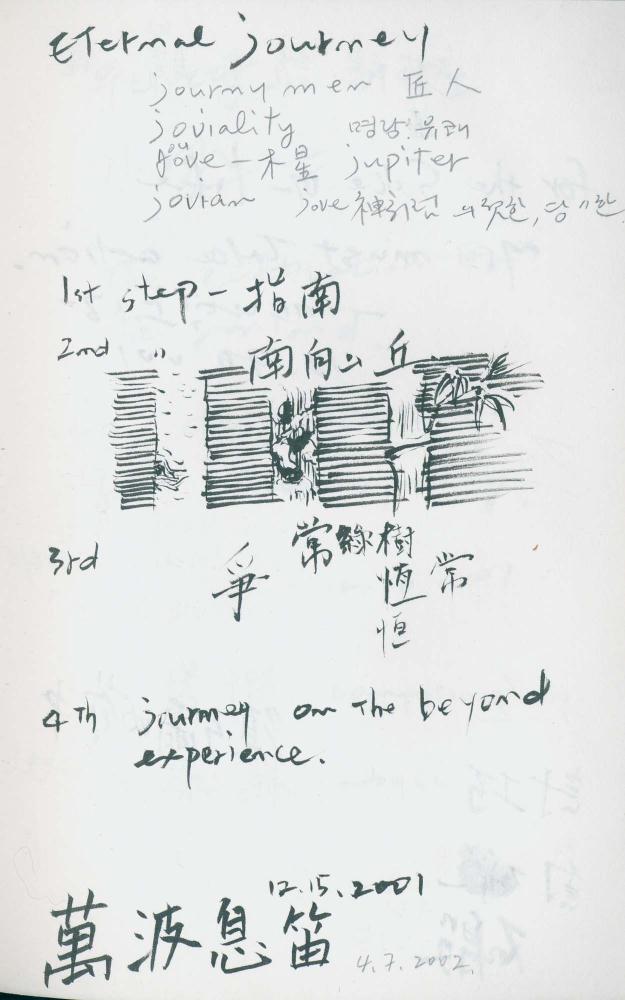 Eternal journey
journy men 匠人
joviality 명랑. 유쾌
jove - 木星 jupiter
jovian jove神처럼 의젓한, 당당한
1st step - 指南
2nd 〃 南向 丘
3rd 爭 常綠樹
恆常
恒
4th journey on the beyond
experience.
12.15.2001
萬波息笛 4.7.2002.